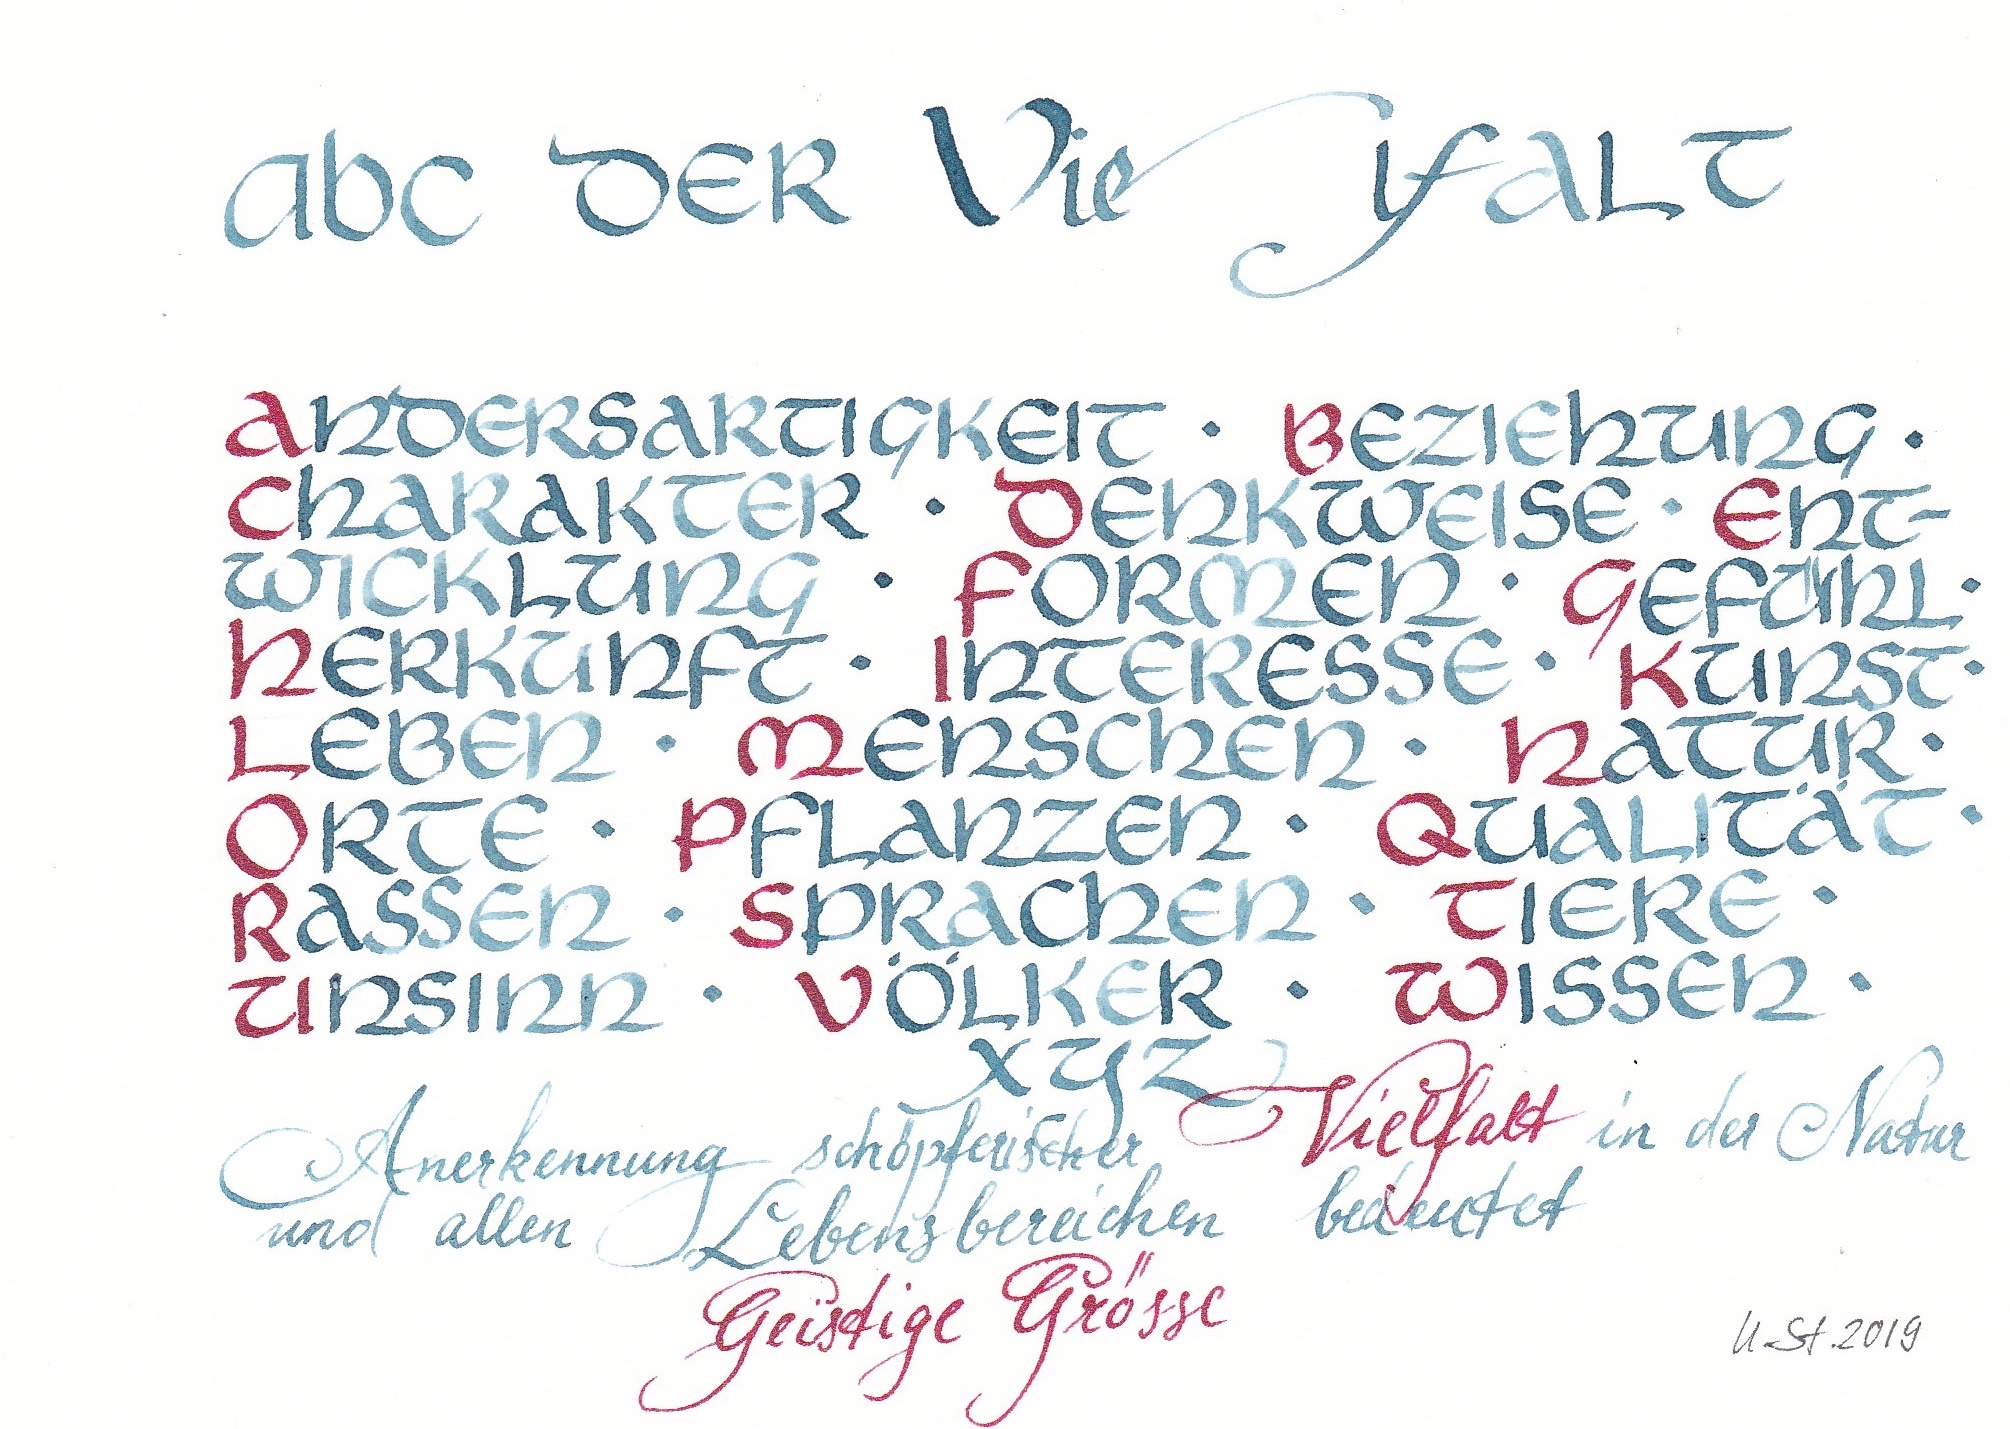 abc DER Vielfalt
ANDERSARTIGKEIT · BEZIEHUNG ·
CHARAKTER · DENKWEISE · ENT-
WICKLUNG · FORMEN · GEFÜHL ·
HERKUNFT · INTERESSE · KUNST ·
LEBEN · MENSCHEN · NATUR ·
ORTE · PFLANZEN · QUALITÄT ·
RASSEN · SPRACHEN · TIERE ·
UNSINN · VÖLKER · WISSEN ·
XYZ
Anerkennung schöpferischer Vielfalt in der Natur
und allen Lebensbereichen bedeutet
Geistige Grösse
U.St.2019